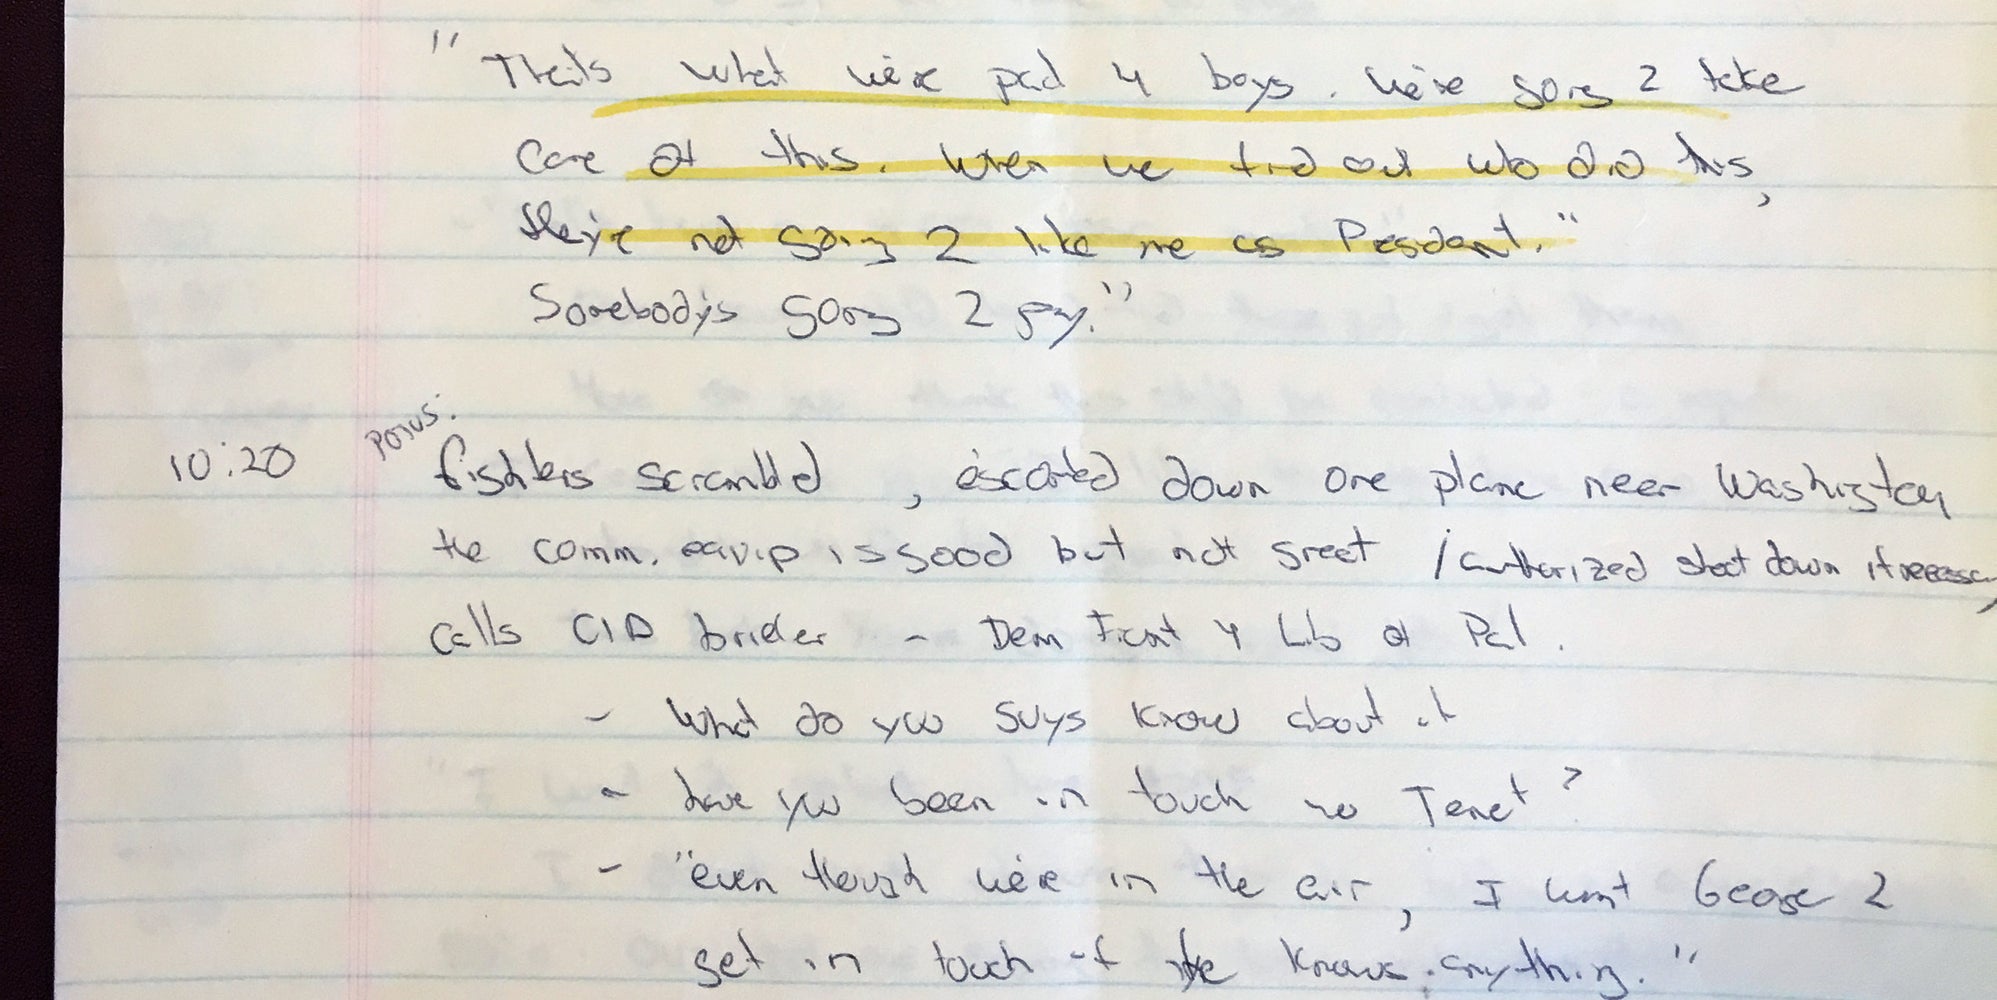 "That's what we're paid 4 boys. We're going 2 take
care of this. When we find out who did this,
they're not going 2 like me as President."
Somebody's going 2 pay."
10:20 POTUS: fighters scrambled, escorted down one plane near Washington
the comm. equip is good but not great / authorized shoot down if necessary
calls CIA briefer - Dem Front 4 Lib of Pal.
- What do you guys know about it
- have you been in touch w Tenet?
- "even though we're in the air, I want George 2
get in touch if he knows anything."